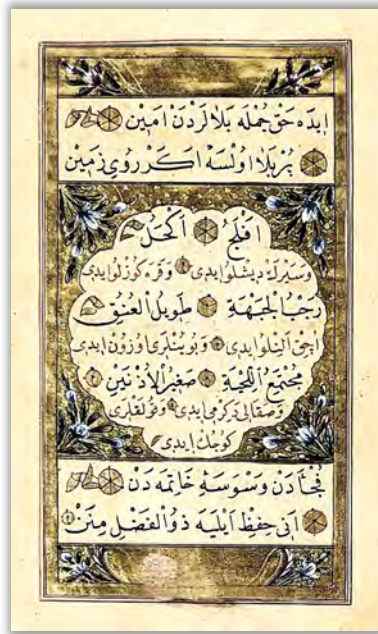 ایده حق جمله بلالردن امین
پر بلا اولسه اکر روی زمین
افلج اکحل
وسیرك دیشلو ایدی وقره کوزلو ایدی
رحب الجبهة طویل العنق
اچق النلو ایدی وبوینلری اوزون ایدی
مجتمع اللحية صغير الأذنين
وصقالی دکرمی ایدی وقولقلری
کوچك ایدی
فجأدن وسوسۀ خاتمه دن
انی حفظ ایلیه ذو الفضل منن